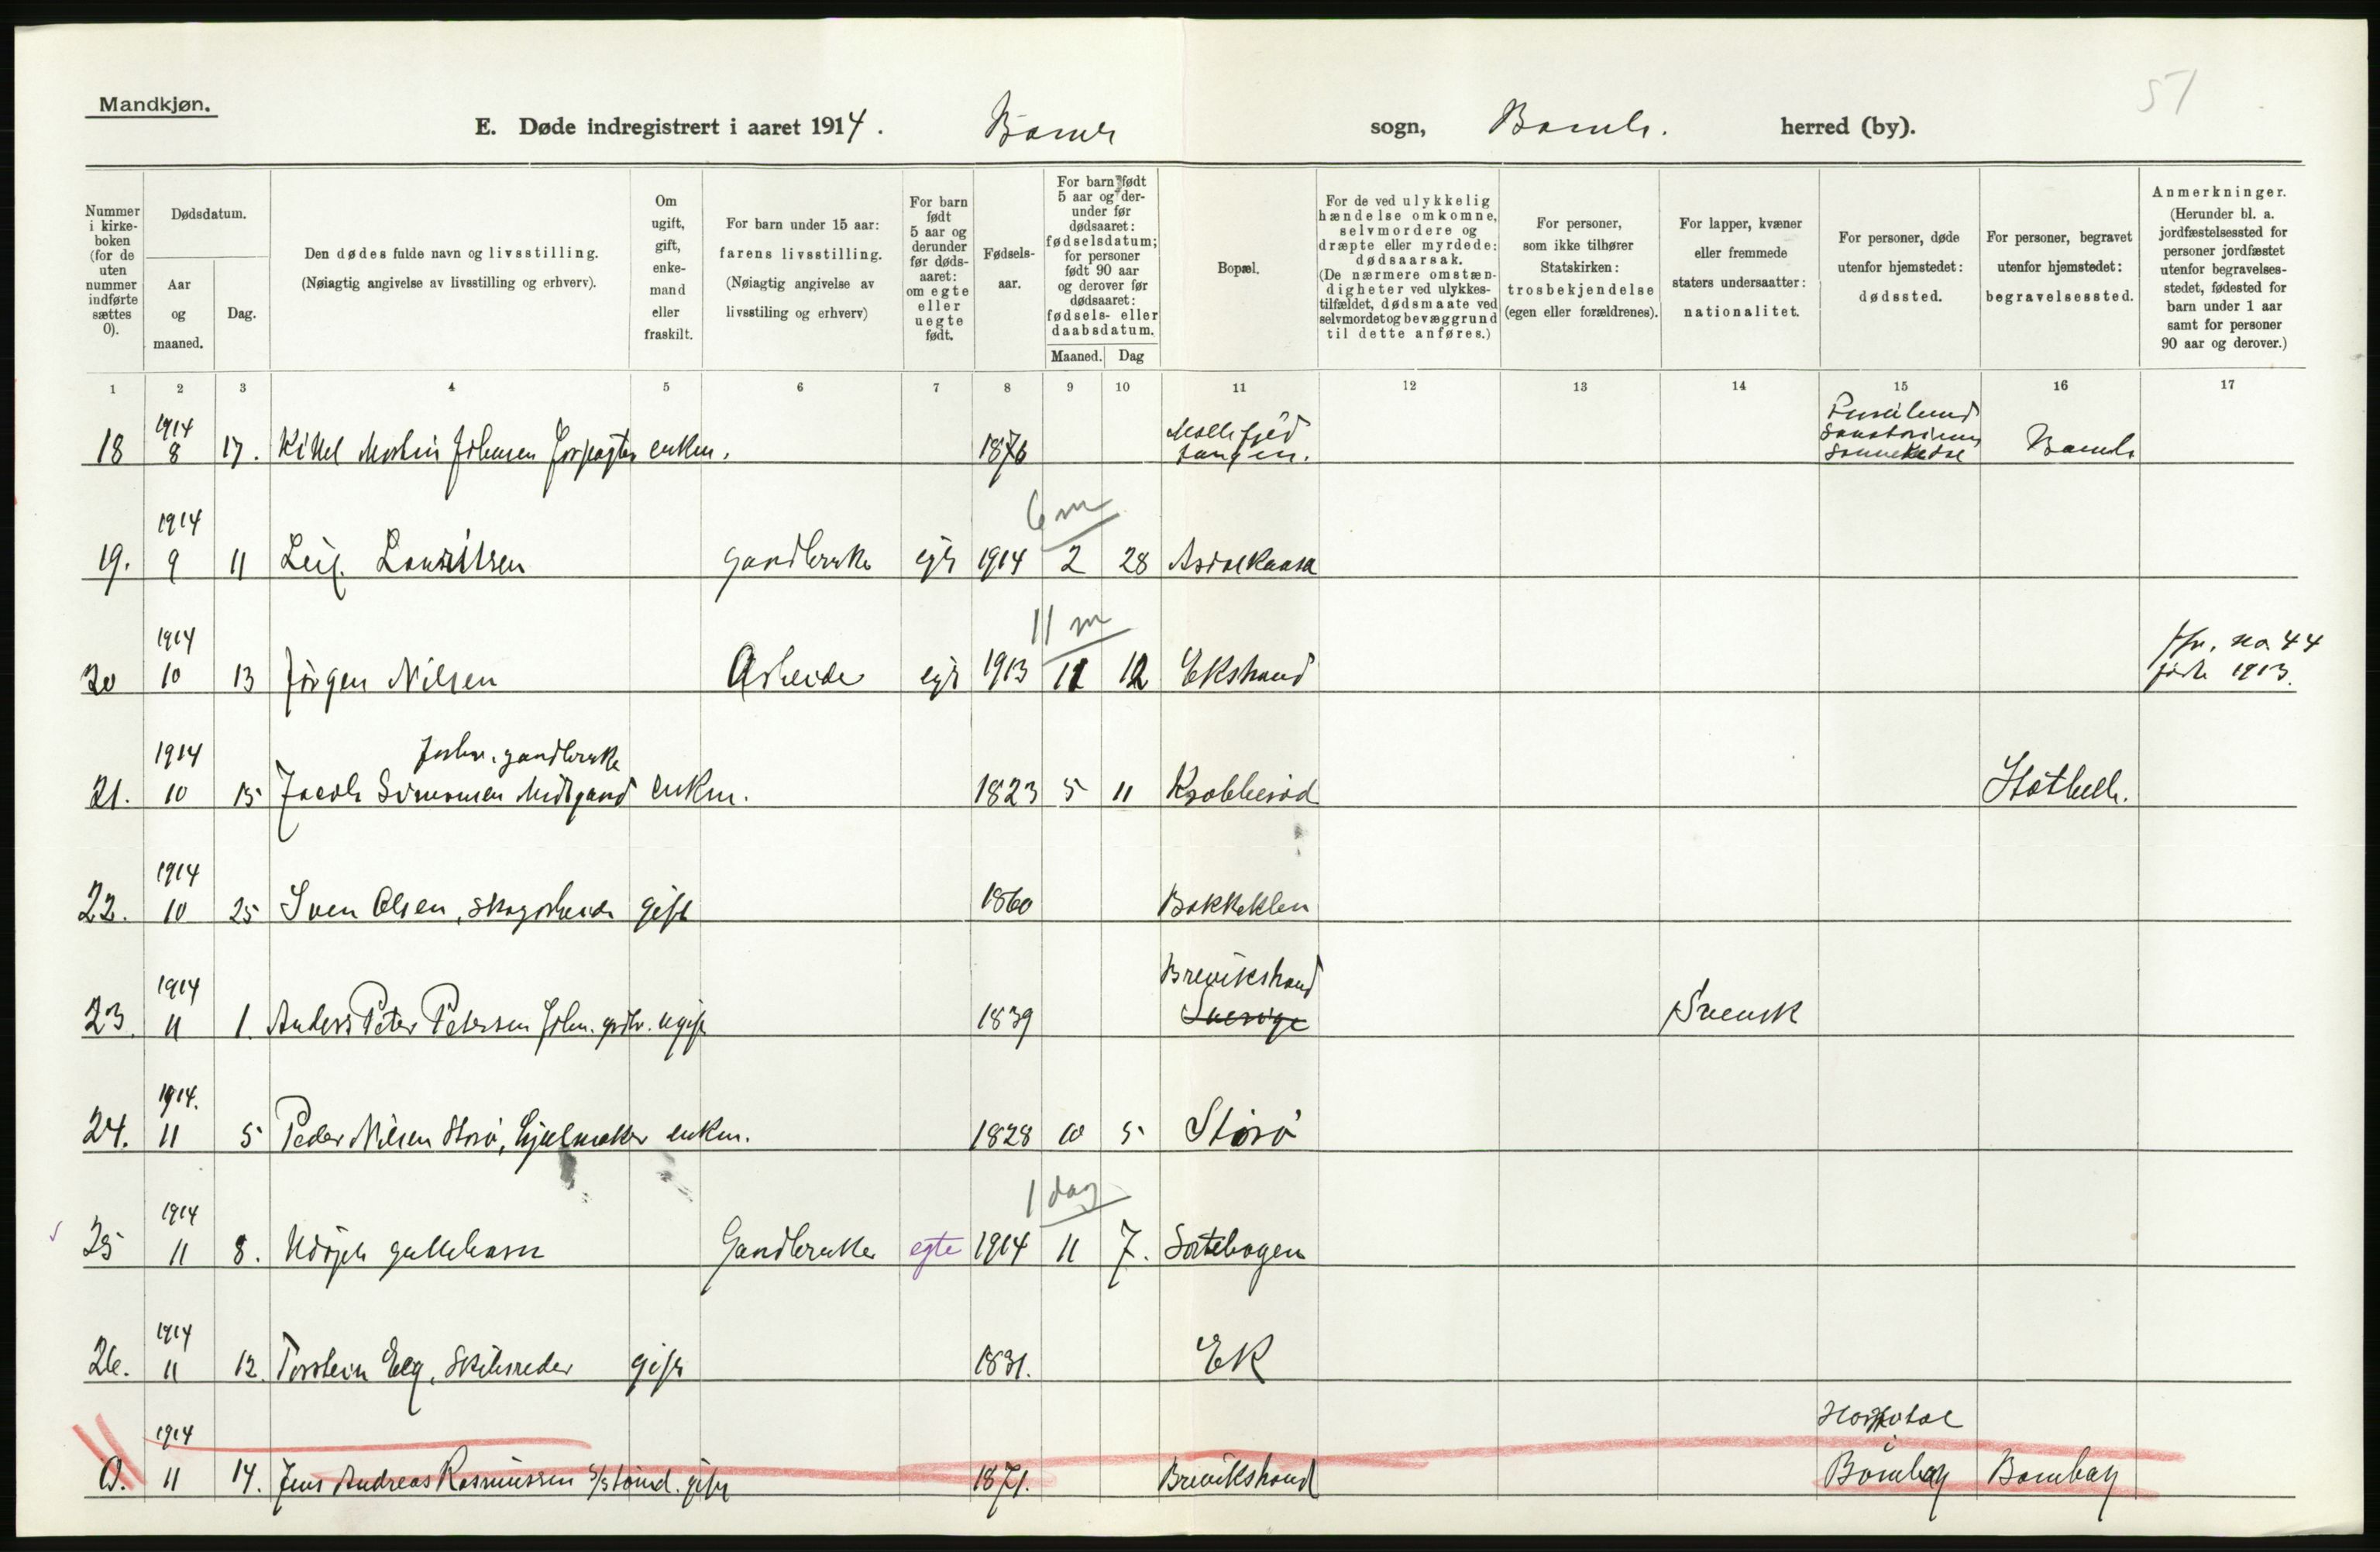 Mandkjøn.
51
E. Døde indregistrert i aaret 1914. Bamle sogn, Bamle. herred (by).
Nummer i kirkeboken (for de uten nummer indførte sættes 0).
Dødsdatum.
Aar og maaned.
Dag.
Den dødes fulde navn og livsstilling.
(Nøiagtig angivelse av livsstilling og erhverv).
Om ugift, gift, enkemand eller fraskilt.
For barn under 15 aar: farens livsstilling.
(Nøiagtig angivelse av livsstiling og erhverv)
For barn født 5 aar og derunder før dødsaaret: om egte eller uegte født.
Fødselsaar.
For barn født 5 aar og derunder før dødsaaret: fødselsdatum; for personer født 90 aar og derover før dødsaaret: fødsels- eller daabsdatum.
Maaned. Dag
Bopæl.
For de ved ulykkelig hændelse omkomne, selvmordere og dræpte eller myrdede: dødsaarsak.
(De nærmere omstændigheter ved ulykkestilfældet, dødsmaate ved selvmordet og bevæggrund til dette anføres.)
For personer, som ikke tilhører Statskirken: trosbekjendelse (egen eller forældrenes).
For lapper, kvæner eller fremmede staters undersaatter: nationalitet.
For personer, døde utenfor hjemstedet: dødssted.
For personer, begravet utenfor hjemstedet: begravelsessted.
Anmerkninger.
(Herunder bl. a. jordfæstelsessted for personer jordfæstet utenfor begravelsesstedet, fødested for barn under 1 aar samt for personer 90 aar og derover.)
1 2 3 4 5 6 7 8 9 10 11 12 13 14 15 16 17
18 1914 8 17. Kittel Martin Johnsen Forpagter enkm. 1876 tangen. Sanatorium Sannikedal Bamle
6 m
19. 1914 9 11 Leif Lauritsen Gaardbruker egte 1914 2 28 Asdalkaasa
11 m
20 1914 10 13 Jörgen Nilsen Arbeider egte 1913 11 12 Ekstrand jfr. no 44 födte 1913.
21. 1914 10 15 Jacob Simonsen Midgaard forhv. gaardbruker enkm. 1823 5 11 Krabberöd Stathelle.
22. 1914 10 25 Sven Olsen, skogarbeider gift 1860 Bakkeklen
23. 1914 11 1. Anders Peter Petersen ugift 1839 Brevikstrand Sverige Svensk
24. 1914. 11 5 Peder Nilsen Storö, hjulmaker enkm. 1828 10 5 Storö
1 dag
25 1914 11 8. Udöpt guttebarn Gaardbruker egte 1914 11 7. Sortebogen
26. 1914 11 12. Torstein Eeg, Skibsreder gift 1831. Ek
0. 1914 11 14. Jens Andreas Rasmussen gift 1871. Brevikstrand Hospital i Bombay Bombay